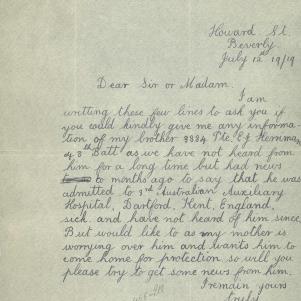 Howard St.
Beverly.
July 12th 19/19
Dear Sir or Madam.
I am
writting these few lines to ask you if
you could kindly give me any informa-
tion of my brother 3834 Pte. E.J.
of 8th Batt as we have not heard from
him for a long time but had news
to months ago to say that he was
admitted to 3rd Australian Auxiliary
Hospital, Dartford, Kent, England,
sick and have not heard of him since.
But would like to as my mother is
worrying over him and wants him to
come home for protection so will you
please try to get some news from him.
I remain yours
truly